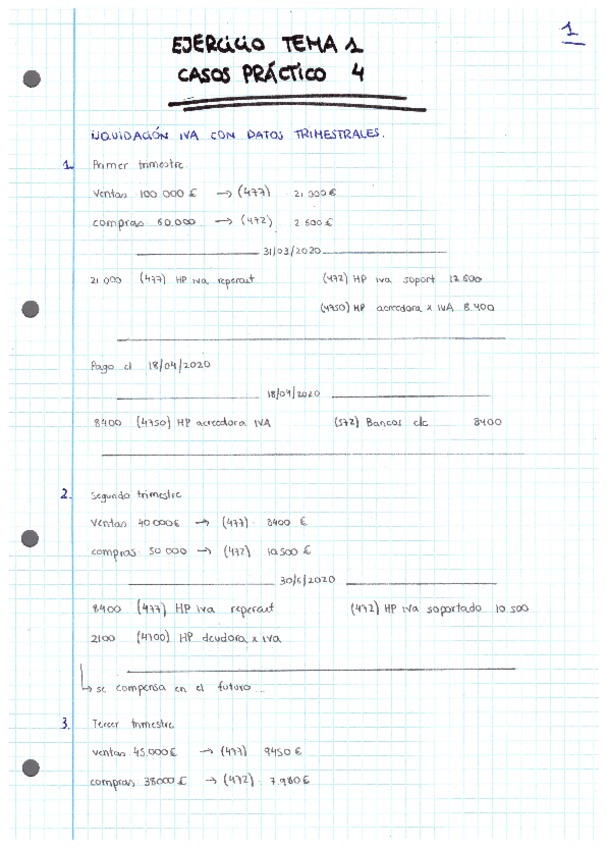 1
EJERCICIO TEMA 1
CASOS PRÁCTICO 4
LIQUIDACIÓN IVA CON DATOS TRIMESTRALES.
1. Primer trimestre
Ventas 100 000 € → (477) 21 000 €
compras 60.000 → (472) 2 600 €
31/03/2020
21 000 (477) HP iva repercut (472) HP iva soport 12.600
(4750) HP acreedora x IVA 8.400
Pago el 18/04/2020
18/04/2020
8400 (4750) HP acreedora IVA (572) Bancos c/c 8400
2. Segundo trimestre
Ventas 40 000€ → (477) 8400 €
compras 50 000 → (472) 10.500 €
30/6/2020
8400 (477) HP iva repercut (472) HP iva soportado 10 500
2100 (4700) HP deudora x iva
↳ se compensa en el futuro...
3. Tercer trimestre
ventas 45.000€ → (477) 9450 €
compras 38000 € → (472) 7.980€